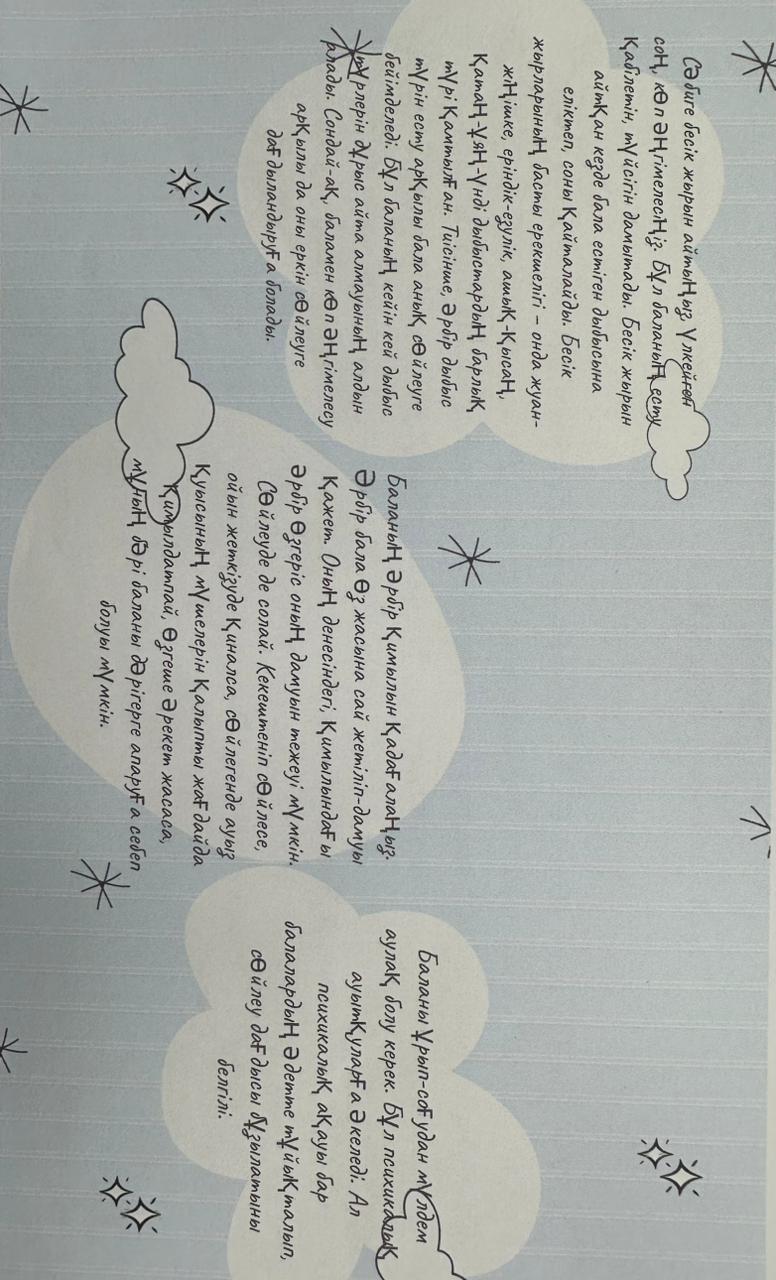 Сәбиге бесік жырын айтыңыз. Үлкейген
соң, көп әңгімелесіңіз. Бұл баланың есту
қабілетін, түйсігін дамытады. Бесік жырын
айтқан кезде бала естіген дыбысына
еліктеп, соны қайталайды. Бесік
жырларының басты ерекшелігі – онда жуан-
жіңішке, еріндік-езулік, ашық-қысаң,
қатаң-ұяң-үнді дыбыстардың барлық
түрі қамтылған. Тиісінше, әрбір дыбыс
түрін есту арқылы бала анық сөйлеуге
бейімделеді. Бұл баланың кейін кей дыбыс
түрлерін дұрыс айта алмауының алдын
алады. Сондай-ақ, баламен көп әңгімелесу
арқылы да оны еркін сөйлеуге
дағдыландыруға болады.
Баланың әрбір қимылын қадағалаңыз.
Әрбір бала өз жасына сай жетіліп-дамуы
қажет. Оның денесіндегі, қимылындағы
әрбір өзгеріс оның дамуын тежеуі мүмкін.
Сөйлеуде де солай. Кекештеніп сөйлесе,
ойын жеткізуде қиналса, сөйлегенде ауыз
қуысының мүшелерін қалыпты жағдайда
қимылдатпай, өзгеше әрекет жасаса,
мұның бәрі баланы дәрігерге апаруға себеп
болуы мүмкін.
Баланы ұрып-соғудан мүлдем
аулақ болу керек. Бұл психикалық
ауытқуларға әкеледі. Ал
психикалық ақауы бар
балалардың әдетте тұйықталып,
сөйлеу дағдысы бұзылатыны
белгілі.